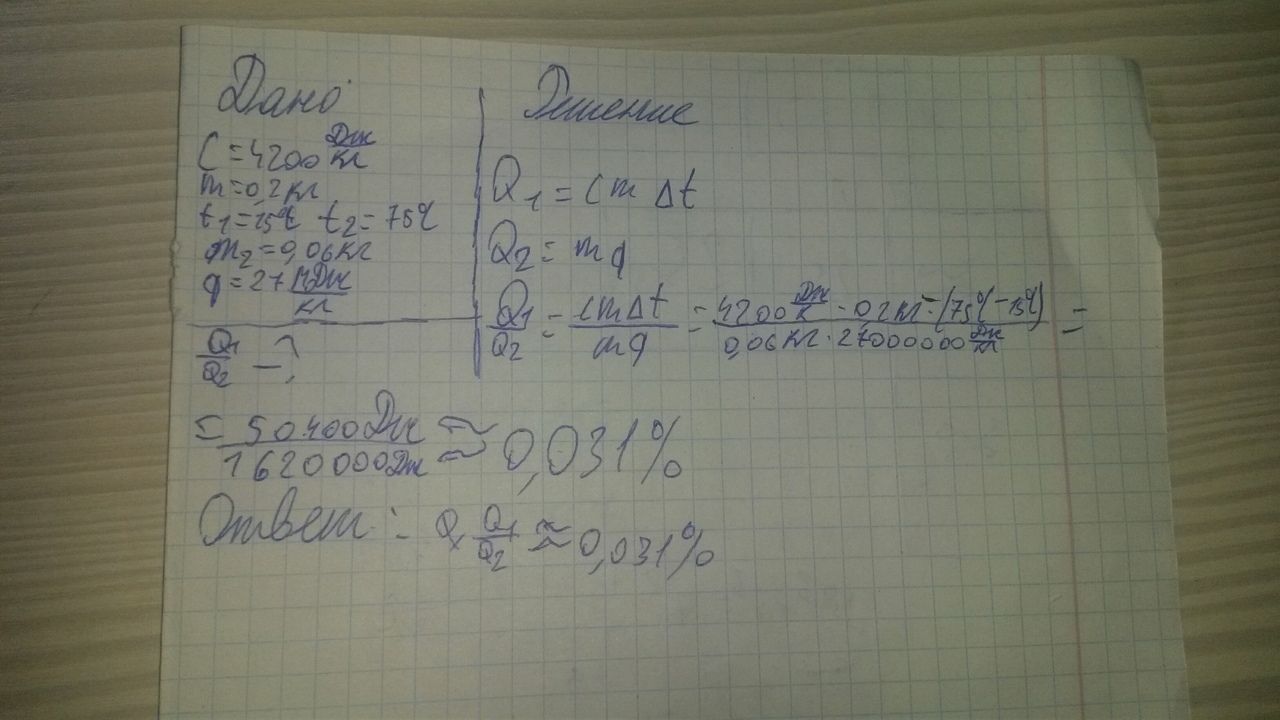 Дано
C = 4200 Дж/кг
m = 0,2 кг
t₁ = 15°C t₂ = 75°C
m₂ = 0,06 кг
q = 27 МДж/кг
Q₁/Q₂ - ?
Решение
Q₁ = cm Δt
Q₂ = mq
Q₁/Q₂ = cmΔt/mq = 4200 Дж/К · 0,2 кг · (75°C - 15°C) / 0,06 кг · 27000000 Дж/кг =
= 50400 Дж / 1620000 Дж ≈ 0,031%
Ответ: Q₁/Q₂ ≈ 0,031%